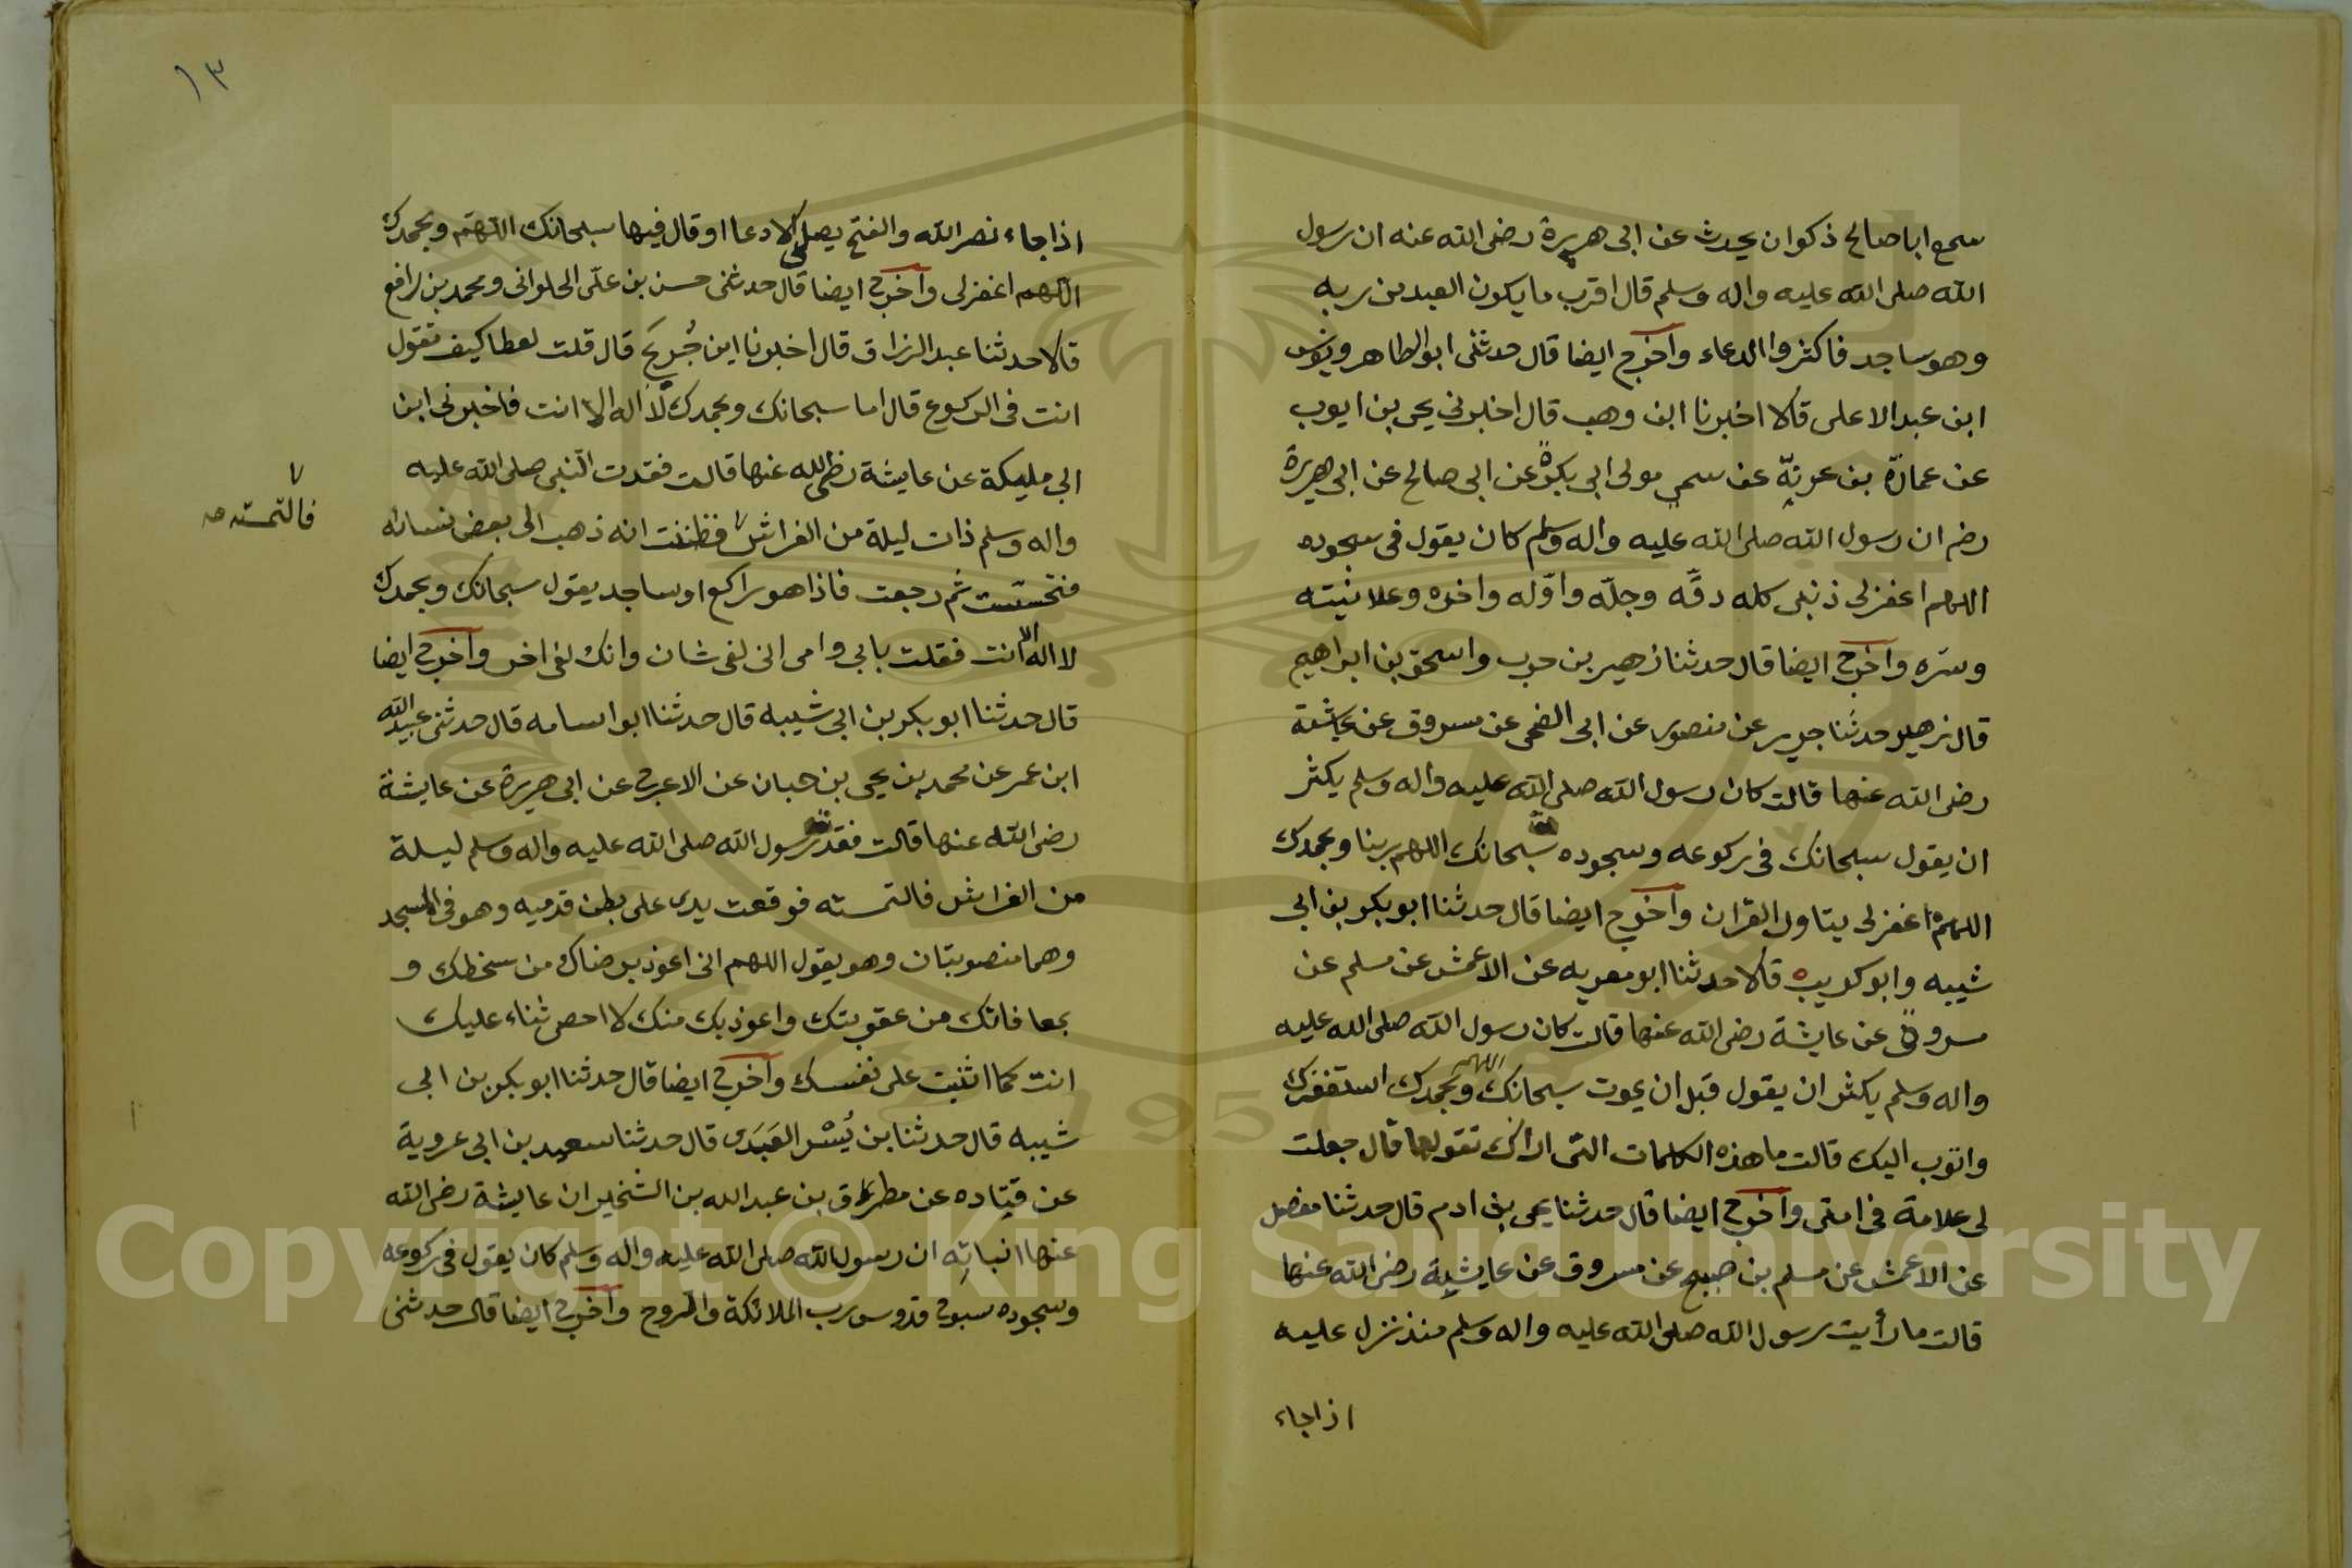 سمع ابا صالح ذكوان يحدث عن ابى هريرة رضى الله عنه ان رسول
الله صلى الله عليه واله وسلم قال اقرب ما يكون العبد من ربه
وهو ساجد فاكثروا الدعاء واخرج ايضا قال حدثنى ابو الطاهر ويونس
ابن عبد الاعلى قالا اخبرنا ابن وهب قال اخبرنى يحى بن ايوب
عن عمارة بن عزية عن سمي مولى ابى بكرة عن ابى صالح عن ابى هريرة
رضه ان رسول الله صلى الله عليه واله وسلم كان يقول فى سجوده
اللهم اغفرلى ذنبى كله دقه وجلّه واوّله واخره وعلانيته
وسره واخرج ايضا قال حدثنا زهير بن حرب واسحق بن ابراهيم
قال زهير حدثنا جرير عن منصور عن ابى الضحى عن مسروق عن عايشة
رضى الله عنها قالت كان رسول الله صلى الله عليه واله وسلم يكثر
ان يقول سبحانك فى ركوعه وسجوده سبحانك اللهم ربنا وبحمدك
اللهم اغفرلى يتاول القران واخرج ايضا قال حدثنا ابو بكر بن ابى
شيبه وابو كريب قالا حدثنا ابو معويه عن الاعمش عن مسلم عن
مسروق عن عايشة رضى الله عنها قالت كان رسول الله صلى الله عليه
واله وسلم يكثر ان يقول قبل ان يموت سبحانك اللهم وبحمدك استغفرك
واتوب اليك قالت ما هذه الكلمات التى اراك تقولها قال جعلت
لى علامة فى امتى واخرج ايضا قال حدثنا يحى بن ادم قال حدثنا مفضل
عن الاعمش عن مسلم بن صبيح عن مسروق عن عايشة رضى الله عنها
قالت ما رأيت رسول الله صلى الله عليه واله وسلم منذ نزل عليه
اذا جاء
١٣
اذا جاء نصر الله والفتح يصلى الا دعا او قال فيها سبحانك اللهم وبحمدك
اللهم اغفرلى واخرج ايضا قال حدثنى حسن بن علّى الحلوانى ومحمد بن رافع
قالا حدثنا عبد الرزاق قال اخبرنا ابن جُريَج قال قلت لعطا كيف تقول
انت فى الركوع قال اما سبحانك وبحمدك لا اله الا انت فاخبرنى ابن
ابي مليكة عن عايشة رضى الله عنها قالت فقدت النبى صلى الله عليه
واله وسلم ذات ليلة من الفراش فظننت انه ذهب الى بعض نسائه
فالتمسته صه
فتحسّست ثم رجعت فاذا هو راكع او ساجد يقول سبحانك وبحمدك
لا اله الا انت فقلت بابي وامى انى لفى شان وانك لفى اخر واخرج ايضا
قال حدثنا ابو بكر بن ابي شيبه قال حدثنا ابو اسامه قال حدثنى عبيد الله
ابن عمر عن محمد بن يحى بن حبان عن الاعرج عن ابى هريرة عن عايشة
رضى الله عنها قالت فقدت رسول الله صلى الله عليه واله وسلم ليلة
من الفراش فالتمسته فوقعت يدى على بطن قدميه وهو فى المسجد
وهما منصوبتان وهو يقول اللهم انى اعوذ برضاك من سخطك و
بمعافاتك من عقوبتك واعوذ بك منك لا احصى ثناء عليك
انت كما اثنيت على نفسك واخرج ايضا قال حدثنا ابو بكر بن ابي
شيبه قال حدثنا بن بُشْر العَبَدى قال حدثنا سعيد بن ابى عروبة
عن قتاده عن مطرف بن عبد الله بن الشخير ان عايشة رضى الله
عنها انباته ان رسول الله صلى الله عليه واله وسلم كان يقول فى ركوعه
وسجوده سبوح قدوس رب الملائكة والروح واخرج ايضا قال حدثنى
Copyright © King Saud University
1957